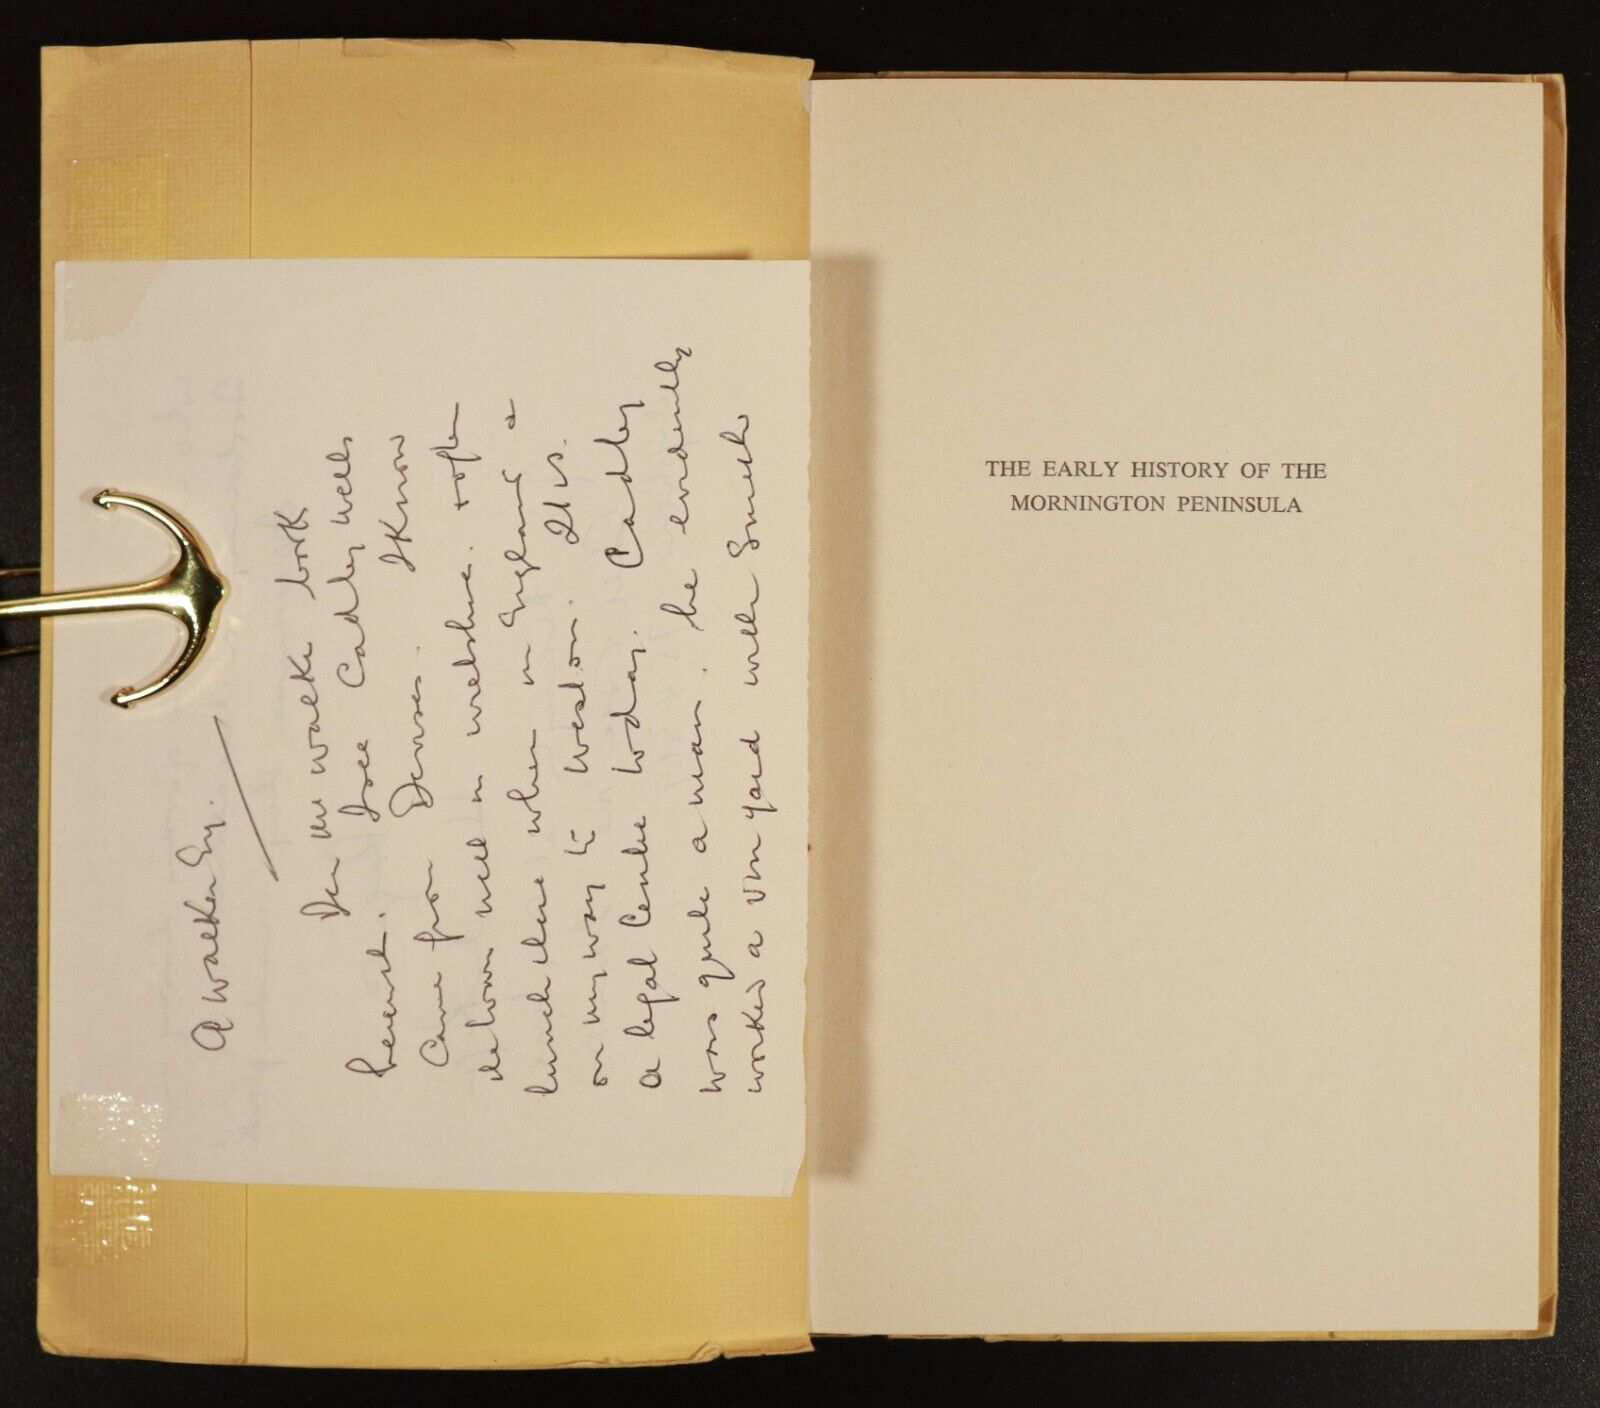 A Walker Esq.
Dear Mr Walker book
herewith. I see Cadby Wells
Came from Devizes. I Know
the town well in wiltshire. + often
lunch there when in England
on my way to Weston. It is
a legal Centre today. Cadby
was quite a man. he evidently
worked a vin yard with Smith
THE EARLY HISTORY OF THE
MORNINGTON PENINSULA